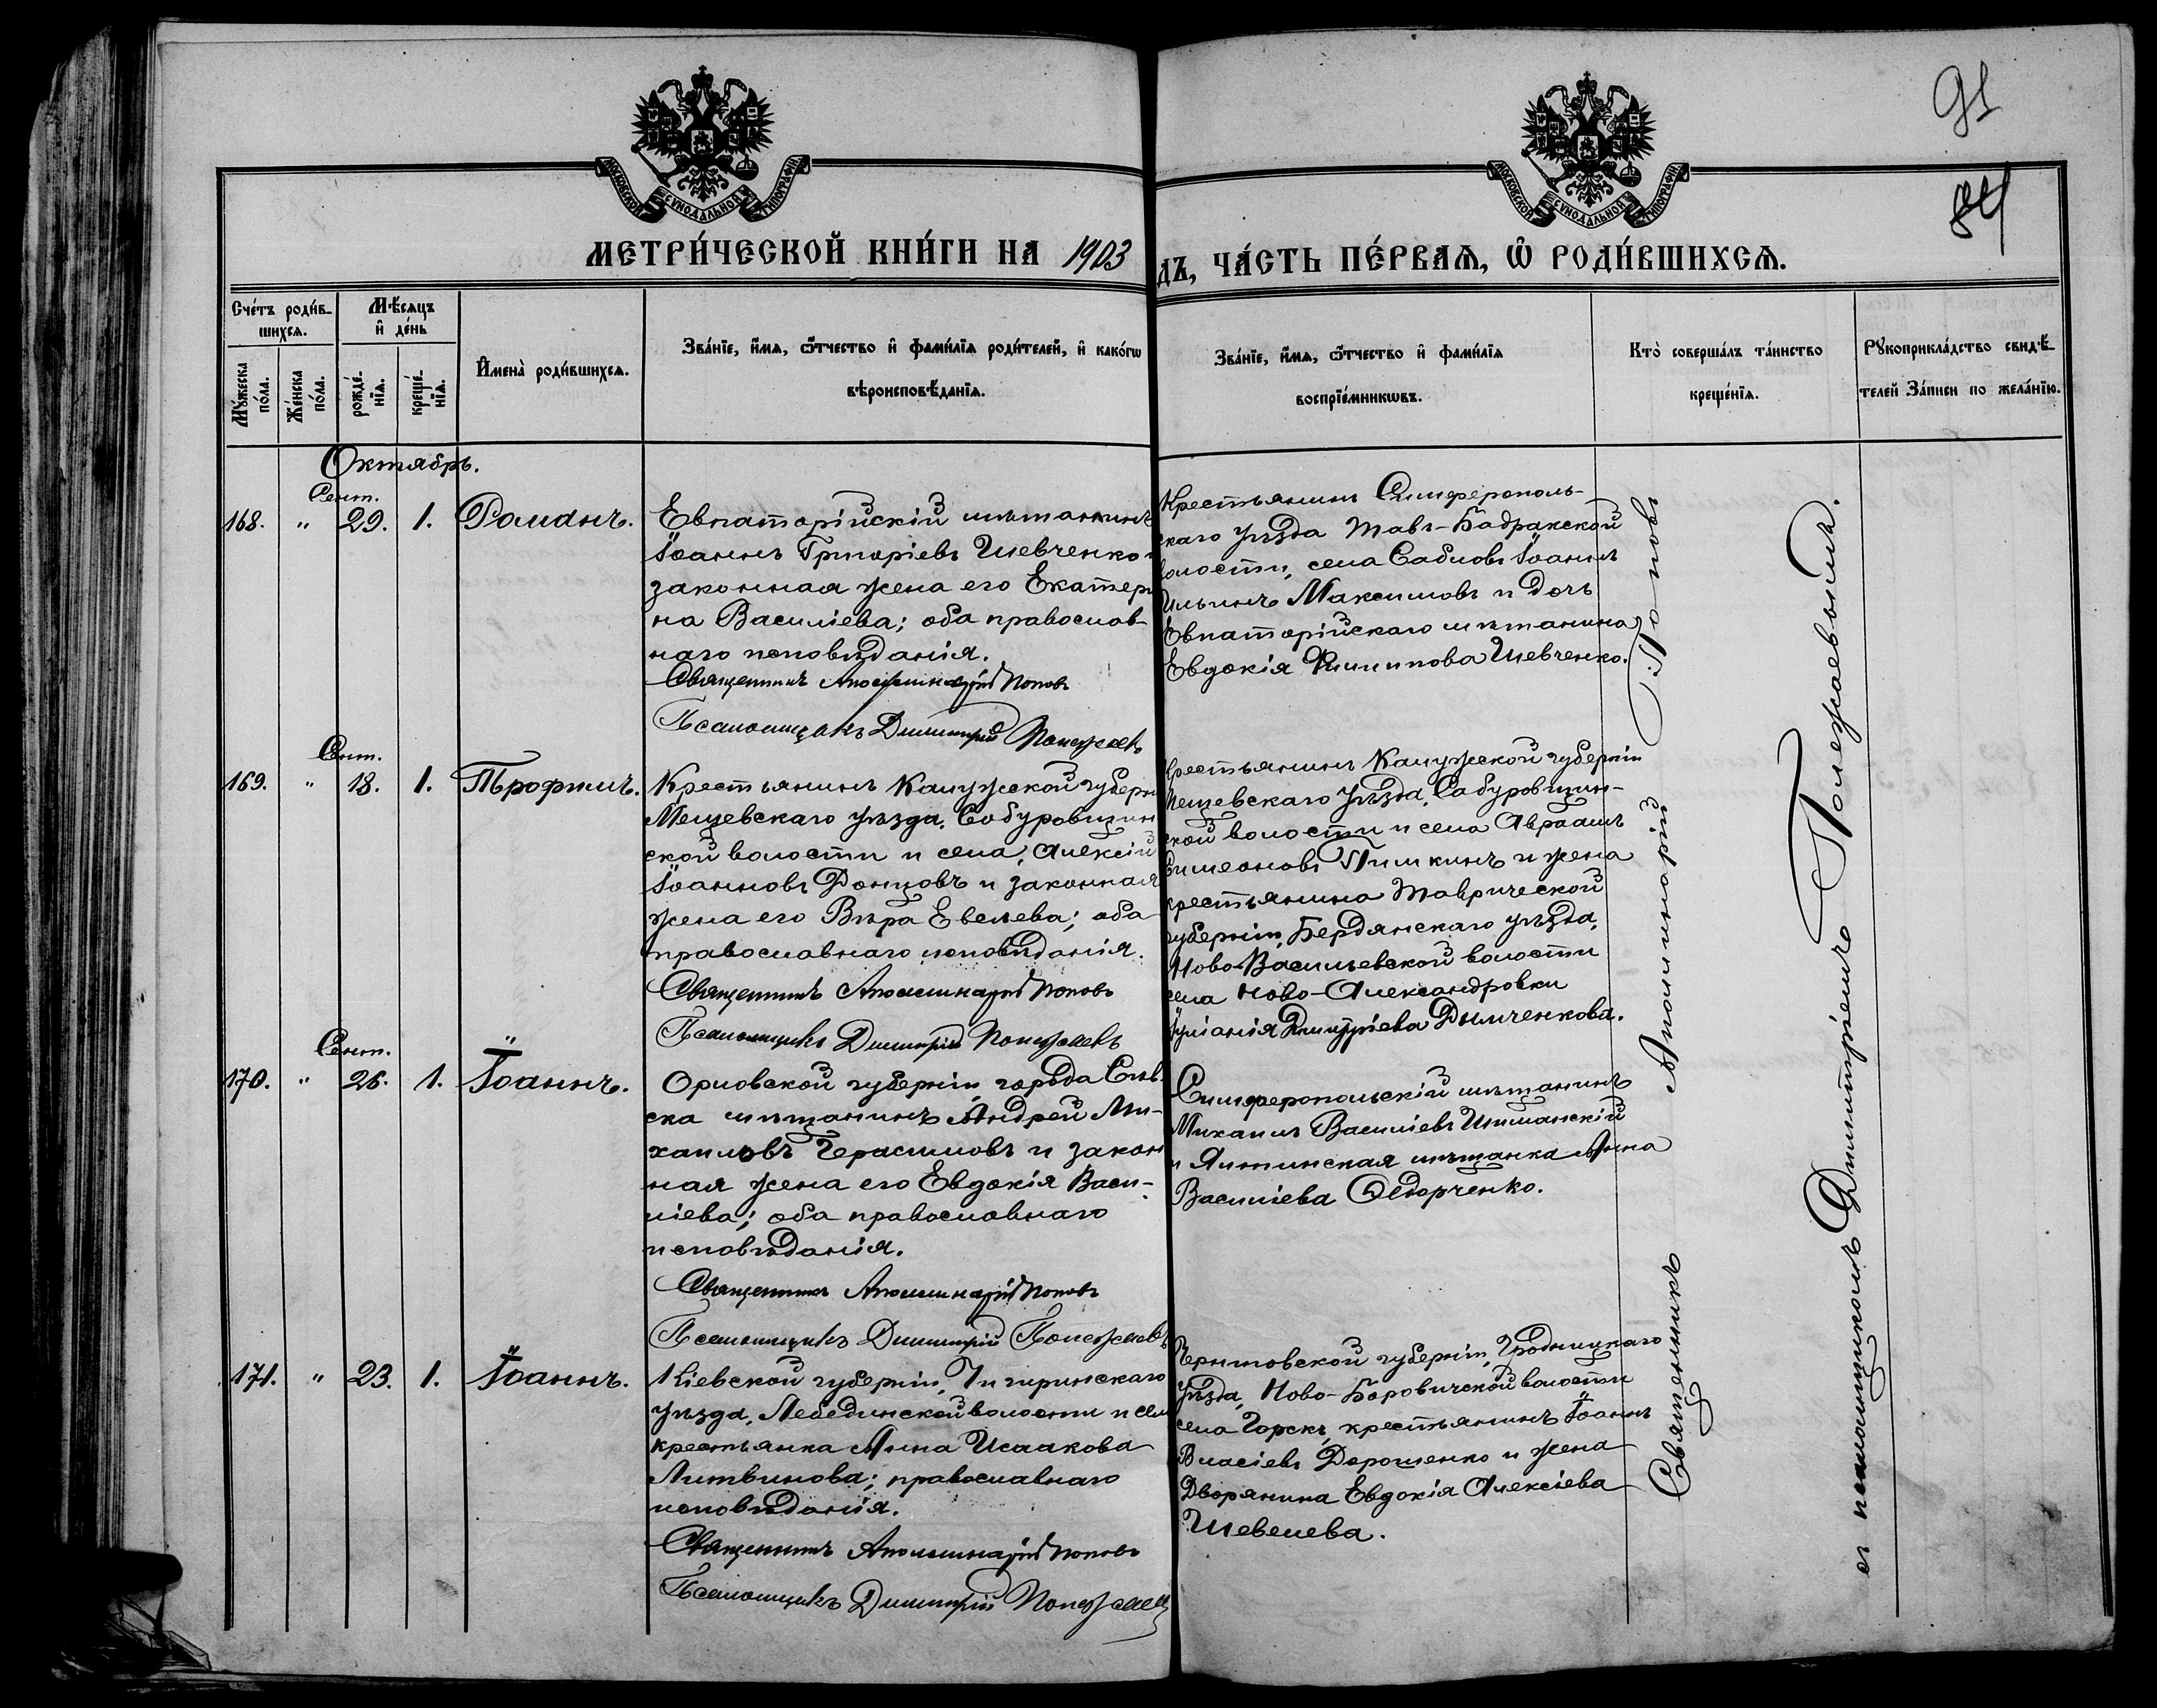 91
84
МОСКОВСКОЙ СѴНОДАЛЬНОЙ ТИПОГРАФІИ
МОСКОВСКОЙ СѴНОДАЛЬНОЙ ТИПОГРАФІИ
МЕТРИ́ЧЕСКОЙ КНИ́ГИ НА 1903
ДЪ, ЧА́СТЬ ПЕ́РВАѦ, Ѡ҆ РОДИ́ВШИХСѦ.
Сче́тъ роди́в-
шихсѧ.
Мѣ́сѧцъ
и҆ де́нь
Мꙋ́жеска
по́ла.
Же́нска
по́ла.
рожде́-
нїѧ.
креще́-
нїѧ.
И҆мена̀ роди́вшихсѧ.
Зва́нїе, и҆́мѧ, ѻ҆́тчество и҆ фами́лїѧ роди́телей, и҆ како́гѡ
вѣроисповѣ́данїѧ.
Зва́нїе, и҆́мѧ, ѻ҆́тчество и҆ фами́лїѧ
воспрїе́мникѡвъ.
Кто̀ соверша́лъ та́инство
креще́нїѧ.
Рꙋкоприкла́дство свидѣ́-
телей за́писи по жела́нїю.
Октябрь.
Сент.
168. " 29. 1. Романъ.
Евпаторійскій мѣщанинъ
Іоаннъ Григоріевъ Шевченко и
законная жена его Екатери
на Василіева; оба православ-
наго исповѣданія.
Священникъ Аполлинарій Поповъ
Псаломщикъ Димитрій Полежаевъ
Крестьянинъ Симферополь-
скаго уѣзда Тавъ-Бадракской
волости, села Сабловъ Іоаннъ
Ильинъ Максимовъ и дочь
Евпаторійскаго мѣщанина
Евдокія Филиппова Шевченко.
Сент.
169. " 18. 1. Трофимъ.
Крестьянинъ Калужской губерн
Мещевскаго уѣзда, Сабуровщин
ской волости и села, Алексій
Іоанновъ Донцовъ и законная
жена его Вѣра Евсѣева; оба
православнаго исповѣданія.
Священникъ Аполлинарій Поповъ
Псаломщикъ Димитрій Полежаевъ
Крестьянинъ Калужской губерніи
Мещевскаго уѣзда, Сабуровщин-
ской волости и села Авраамъ
Симеоновъ Пишкинъ и жена
крестьянина Таврической
губерніи, Бердянскаго уѣзда,
Ново-Васильевской волости
села Ново-Александровки
Іуліанія Димитріева Дымченкова.
Сент.
170. " 26. 1. Іоаннъ.
Орловской губерніи, города Сѣв
ска мѣщанинъ Андрей Ми-
хаиловъ Герасимовъ и закон
ная жена его Евдокія Васи-
ліева; оба православнаго
исповѣданія.
Священникъ Аполлинарій Поповъ
Псаломщикъ Димитрій Полежаевъ
Симферопольскій мѣщанинъ
Михаилъ Василіевъ Шиманскій
и Ялтинская мѣщанка Анна
Василіева Ѳедорченко.
171. " 23. 1. Іоаннъ.
Кіевской губерніи, Чигиринскаго
уѣзда, Лебединской волости и села
крестьянка Анна Исаакова
Литвинова; православнаго
исповѣданія.
Священникъ Аполлинарій Поповъ
Псаломщикъ Димитрій Полежаевъ
Черниговской губерніи, Городницкаго
уѣзда, Ново-Боровичской волости
села Горскъ, крестьянинъ Іоаннъ
Власіевъ Дорошенко и жена
Дворянина Евдокія Алексіева
Шевелева.
Священникъ Аполлинарій Поповъ
съ псаломщикомъ Димитріемъ Полежаевымъ.